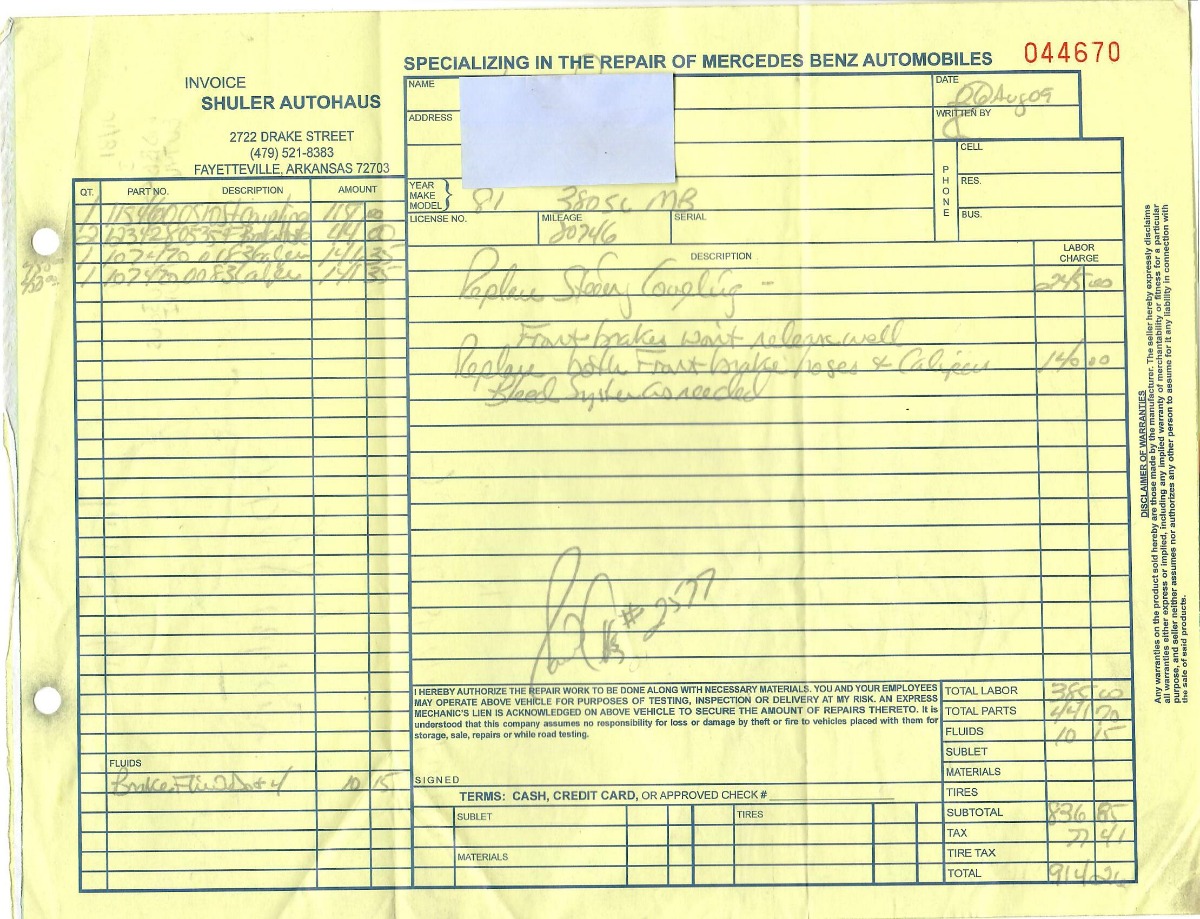 SPECIALIZING IN THE REPAIR OF MERCEDES BENZ AUTOMOBILES 044670
INVOICE
SHULER AUTOHAUS
2722 DRAKE STREET
(479) 521-8383
FAYETTEVILLE, ARKANSAS 72703
NAME
ADDRESS
DATE
06 Aug 09
WRITTEN BY
PHONE
CELL
RES.
BUS.
YEAR
MAKE
MODEL
81 380SL MB
LICENSE NO.
MILEAGE
80746
SERIAL
QT. PART NO. DESCRIPTION AMOUNT
1 Coupling 115 00
2 44 00
1 107420 0083 Caliper 141 35
1 107420 0083 Caliper 141 35
DESCRIPTION
LABOR
CHARGE
Replace Steering Coupling - 245 00
Front brakes won't release well
Replace both Front brake hoses & Calipers 140 00
Bleed System as needed
#2577
I HEREBY AUTHORIZE THE REPAIR WORK TO BE DONE ALONG WITH NECESSARY MATERIALS. YOU AND YOUR EMPLOYEES
MAY OPERATE ABOVE VEHICLE FOR PURPOSES OF TESTING, INSPECTION OR DELIVERY AT MY RISK. AN EXPRESS
MECHANIC'S LIEN IS ACKNOWLEDGED ON ABOVE VEHICLE TO SECURE THE AMOUNT OF REPAIRS THERETO. It is
understood that this company assumes no responsibility for loss or damage by theft or fire to vehicles placed with them for
storage, sale, repairs or while road testing.
SIGNED
TERMS: CASH, CREDIT CARD, OR APPROVED CHECK #
FLUIDS
Brake Fluid Dot 4 10 15
SUBLET
MATERIALS
TIRES
TOTAL LABOR 385 00
TOTAL PARTS 441 70
FLUIDS 10 15
SUBLET
MATERIALS
TIRES
SUBTOTAL 836 85
TAX 77 41
TIRE TAX
TOTAL 914 26
DISCLAIMER OF WARRANTIES
Any warranties on the product sold hereby are those made by the manufacturer. The seller hereby expressly disclaims
all warranties either express or implied, including any implied warranty of merchantability or fitness for a particular
purpose, and seller neither assumes nor authorizes any other person to assume for it any liability in connection with
the sale of said products.